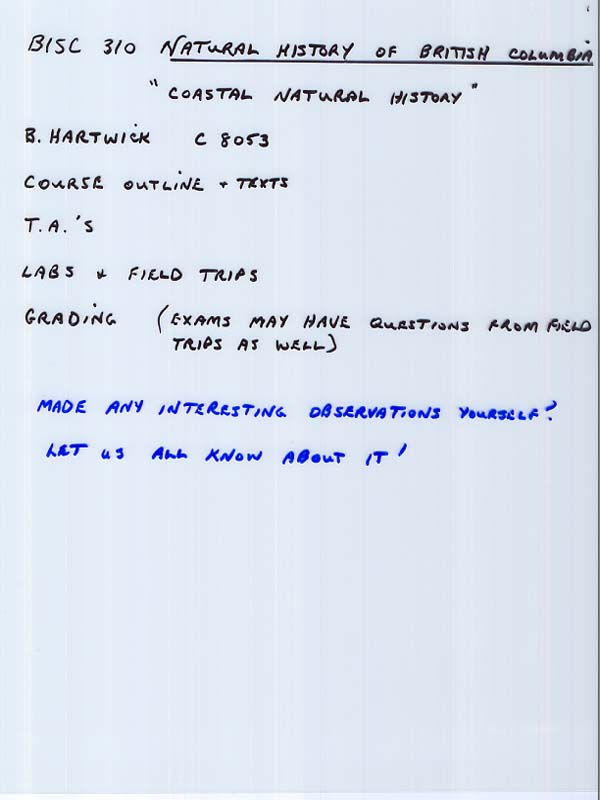 BISC 310 NATURAL HISTORY OF BRITISH COLUMBIA
"COASTAL NATURAL HISTORY"
B. HARTWICK C 8053
COURSE OUTLINE + TEXTS
T.A.'S
LABS & FIELD TRIPS
GRADING (EXAMS MAY HAVE QUESTIONS FROM FIELD
TRIPS AS WELL)
MADE ANY INTERESTING OBSERVATIONS YOURSELF?
LET US ALL KNOW ABOUT IT!